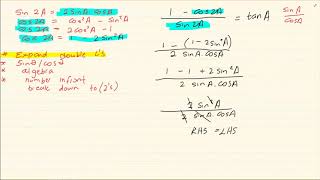 Sin 2A = 2 sin A. cos A
cos 2A = cos²A - sin²A
cos 2A = 2cos²A - 1
cos 2A = 1 - 2sin²A
* Expand double L's
* sinθ/cosθ
* algebra
* number infront
break down to (2's)
1 - cos2A / sin 2A = tan A sin A / cos A
1 - (1 - 2 sin²A) / 2 sin A. cos A
1 - 1 + 2 sin²A / 2 sin A. cos A
2 sin²A / 2 sin A. cos A
RHS = LHS